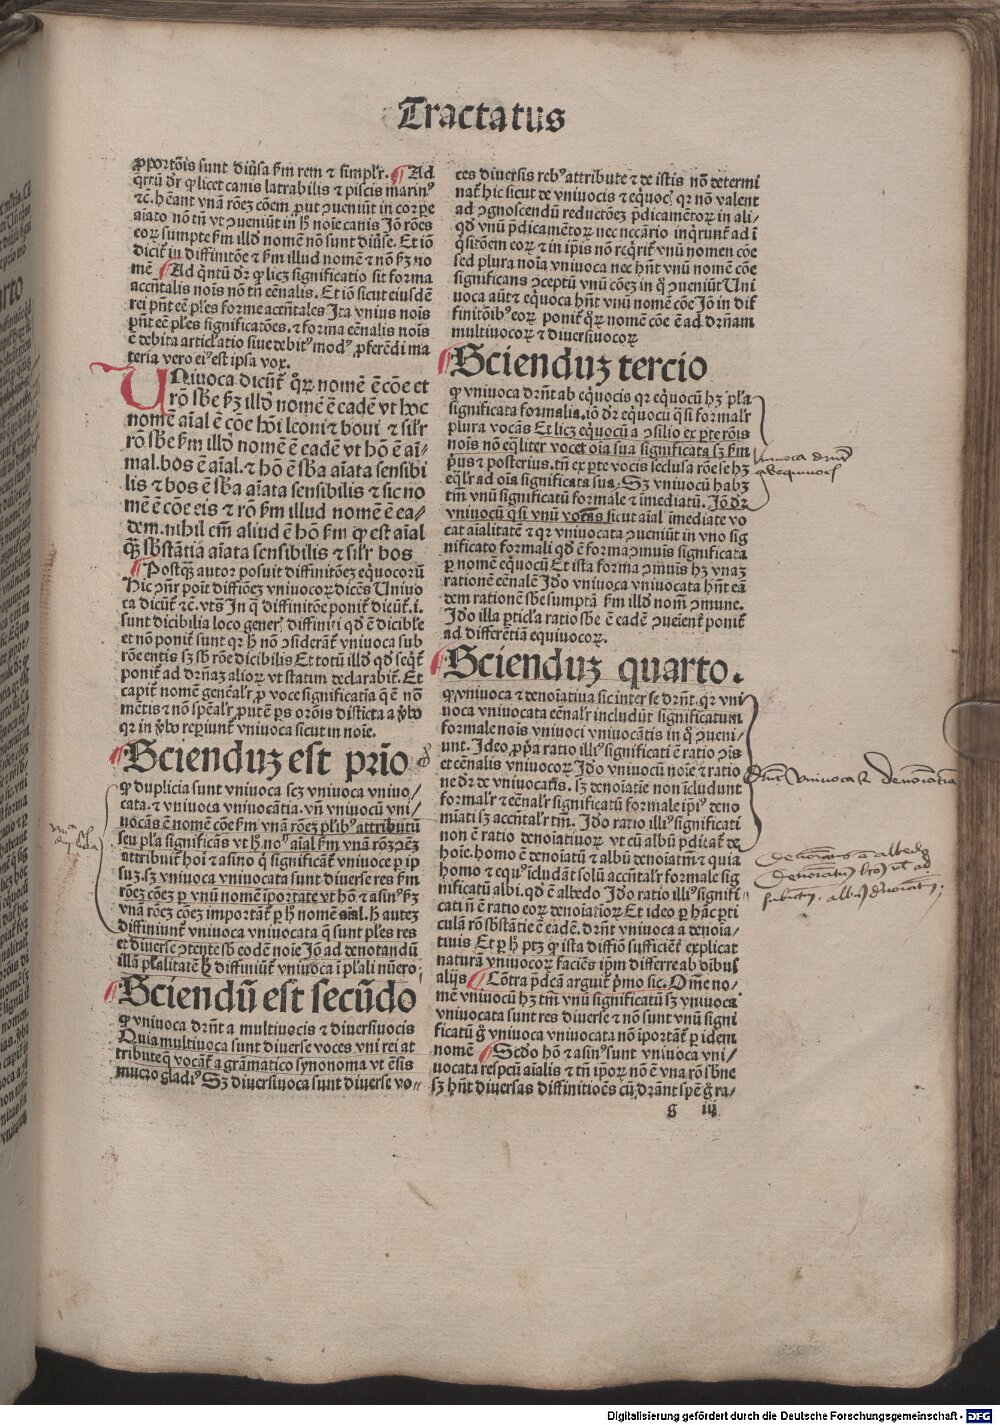 Tractatus
ꝓportõis sunt diũsa ẜm rem ⁊ simplr̃. ¶ Ad
q̃rtũ dr̃ ꝙ licet canis latrabilis ⁊ piscis marinꝰ
⁊c̃. hẽant vnã rõeꝫ cõem ꝓut ꝯueniũt in corpe
aĩato nõ tñ vt ꝯueniũt in hͦ noĩe canis Iõ rões
eoꝝ sumpte ẜm illđ nomẽ nõ sunt diũse. Et iõ
dicit̃ in diffinitõe ⁊ ẜm illud nomẽ ⁊ nõ ẜꝫ no
mẽ ¶ Ad q̃ntũ dr̃ ꝙ licꝫ significatio sit forma
accñtalis nois nõ tñ eẽnalis. Et iõ sicut eiusdẽ
rei pñt eẽ ples forme accñtales Ita vnius nois
pñt eẽ ples significatões. ⁊ forma eẽnalis nois
ẽ debita articlatio siue debitꝰ modꝰ ꝓferẽdi ma
teria vero eiꝰ est ipsa vox.
UNiuoca dicũt̃ q̃ꝝ nomẽ ẽ cõe et
rõ sb̃e ẜꝫ illđ nomẽ ẽ eadẽ vt hoc
nomẽ aĩal ẽ cõe hõi leoni ⁊ boui ⁊ silr̃
rõ sb̃e ẜm illđ nomẽ ẽ eadẽ vt hõ ẽ aĩ-
mal. bos ẽ aĩal. ⁊ hõ ẽ sb̃a aĩata sensibi
lis ⁊ bos ẽ sb̃a aĩata sensibilis ⁊ sic no
mẽ ẽ cõe eis ⁊ rõ ẜm illud nomẽ ẽ ea-
dem. nihil em̃ aliud ẽ hõ ẜm ꝙ est aĩal
q̃ꝫ sbstãtia aĩata sensibilis ⁊ silr̃ bos
¶ Postq̃ꝫ autor posuit diffinitõeꝫ equocorũ
Hic ꝯñr poĩt diffiõeꝫ vniuocoꝝ dicẽs Uniuo
ca dicũt̃ ⁊c̃. vt sͦ In q̃ diffinitõe ponit̃ dicũt̃. i.
sunt dicibilia loco generꝭ diffiniti qđ ẽ dicible
et nõ ponit̃ sunt qꝛ hͦ nõ ꝯsiderãt̃ vniuoca sub
rõe entis sꝫ sb̃ rõe dicibilis Et totũ illđ qđ seq̃t̃
ponit̃ ad drñaꝫ alioꝝ vt statim declarabit̃. Et
capit̃ nomẽ genẽalr̃ ꝓ voce significatĩa q̃ ẽ nõ
mẽtis ⁊ nõ spẽalr̃ ꝓut ẽ ꝑs orõis distĩcta a ꝟbo
qꝛ in ꝟbo reꝑiunt̃ vniuoca sicut in noĩe.
¶ Scienduꝫ est prĩo
ꝙ duplicia sunt vniuoca scꝫ vniuoca vniuo/
cata. ⁊ vniuoca vniuocãtia. vñ vniuocũ vni/
uocãs ẽ nomẽ cõe ẜm vnã rõeꝫ plĩbꝰ attributũ
seu pla significãs vt hͦ noᵐ aĩal ẜm vnã rõꝫ ꝯẽꝫ
attribuit̃ hõi ⁊ asino q̃ significãt̃ vniuoce ꝑ ip
suꝫ. sꝫ vniuoca vniuocata sunt diuerse res ẜm
rõeꝫ cõeꝫ ꝑ vnũ nomẽ ĩportate vt hõ ⁊ asinꝰ ẜꝫ
vnã rõeꝫ cõeꝫ importãt̃ ꝑ hͦ nomẽ aĩal. hͦ auteꝫ
diffiniunt̃ vniuoca vniuocata q̃ sunt ples res
et diuerse ꝯtente sb̃ eodẽ noĩe Iõ ad denotandũ
illã plalitatẽ hͦ diffiniũt̃ vniuoca ĩ plali nũero
¶ Sciendũ est secũdo
ꝙ vniuoca drñt a multiuocis ⁊ diuersiuocis
Quia multiuoca sunt diuerse voces vni rei at
tribute q̃ vocãt̃ a grãmatico synonoma vt ẽsis
mucro gladiꝰ Sꝫ diuersiuoca sunt diuerse vo-
ces diuersis rebꝰ attribute ⁊ de istis nõ determi
nat̃ hic sicut de vniuocis ⁊ eq̃uocꝭ qꝛ nõ valent
ad ꝯgnoscendũ reductõeꝫ p̃dicamẽtoꝝ in ali/
qđ vnũ p̃dicamẽtoꝝ nec necãrio inq̃runt̃ ad ĩ
q̃sitõem eoꝝ ⁊ in ip̃is nõ reqr̃it̃ vnũ nomen cõe
sed plura noĩa vniuoca nec hñt vnũ nomẽ cõe
significans ꝯceptũ vnũ cõeꝫ in q̃ ꝯueniũt Uni
uoca aũt ⁊ eq̃uoca hñt vnũ nomẽ cõe Iõ in dif
finitõibꝰ eoꝝ ponit̃ q̃ꝝ nomẽ cõe ẽ ad drñam
multiuocoꝝ ⁊ diuersiuocoꝝ
¶ Scienduꝫ tercio
ꝙ vniuoca drñt ab eq̃uocis qꝛ eq̃uocũ hꝫ p̃la
significata formalia. iõ dr̃ equocũ q̃si formalr̃
plura vocãs Et licꝫ eq̃uocũ a ꝯsilio ex ꝑte rõis
nois nõ eq̃liter vocet oĩa sua significata sꝫ ẜm
p̃us ⁊ posterius. tñ ex ꝑte vocis seclusa rõe se hꝫ
eq̃lr̃ ad oĩa significata sua. Sꝫ vniuocũ habꝫ
tm̃ vnũ significatũ formale ⁊ ĩmediatũ. Iõ dr̃
vniuocũ q̃si vnũ vocãs sicut aĩal ĩmediate vo
cat aĩalitatẽ ⁊ qꝛ vniuocata ꝯueniũt in vno sig
nificato formali qđ ẽ forma ꝯmuis significata
ꝑ nomẽ eq̃uocũ Et ista forma ꝯmuis hꝫ vnaꝫ
rationẽ eẽnalẽ Iđo vniuoca vniuocata hñt eã
dem rationẽ sb̃e sumptã ẜm illđ nom̃ ꝯmune.
Iđo illa ꝑticla ratio sb̃e ẽ eadẽ ꝯueient̃ ponit̃
ad differẽtiã equiuocoꝝ.
¶ Scienduꝫ quarto.
ꝙ vniuoca ⁊ denoĩatiua sic inter se drñt. qꝛ vni
uoca vniuocata eẽnalr̃ includũt significatum
formale nois vniuoci vniuocãtis in q̃ ꝯueni/
unt. Ideo ꝓp̃a ratio illiꝰ significati ẽ ratio ꝯis
et eẽnalis vniuocoꝝ Iđo vniuocũ noĩe ⁊ ratio
ne dr̃ de vniuocatis. sꝫ denoĩatie non ĩcludunt
formalr̃ ⁊ eẽnalr̃ significatũ formale ip̃iꝰ deno
mĩati sꝫ accñtalr̃ tm̃. Iđo ratio illiꝰ significati
non ẽ ratio denoĩatiuoꝝ vt cũ albũ p̃dicat̃ de
hoĩe. homo ẽ denoĩatũ ⁊ albũ denoĩatm̃ ⁊ quia
homo ⁊ equꝰ ĩcludãt solũ accñtalr̃ formale sig
nificatũ albi. qđ ẽ albedo Iđo ratio illiꝰ signifi
cati ñ ẽ ratio eoꝝ denoĩatioꝝ Et ideo ꝑ hãc ꝑti
culã rõ sbstãtie ẽ eadẽ. drñt vniuoca a denoĩa-
tiuis Et ꝑ hͦ ptꝫ ꝙ ista diffiõ sufficiẽt̃ explicat
naturã vniuocoꝝ faciẽs ip̃m differre ab oĩbus
alijs ¶ Cõtra p̃dcã arguit̃ p̃mo sic. Om̃e no-
mẽ vniuocũ hꝫ tm̃ vnũ significatũ sꝫ vniuoca
vniuocata sunt res diuerse ⁊ nõ sunt vnũ signi
ficatũ g̃ vniuoca vniuocata nõ ĩportãt̃ ꝑ idem
nomẽ ¶ Scđo hõ ⁊ asinꝰ sunt vniuoca vni/
uocata respcũ aĩalis ⁊ tñ ip̃oꝝ nõ ẽ vna rõ sb̃ne
sꝫ hñt diuersas diffinitiões cũ drãnt spẽ g̃ ra/
g iij
Vniuoca drñt
ab equiuocis
Drñt Vniuoca ⁊ denoĩatiua
Digitalisierung gefördert durch die Deutsche Forschungsgemeinschaft - DFG